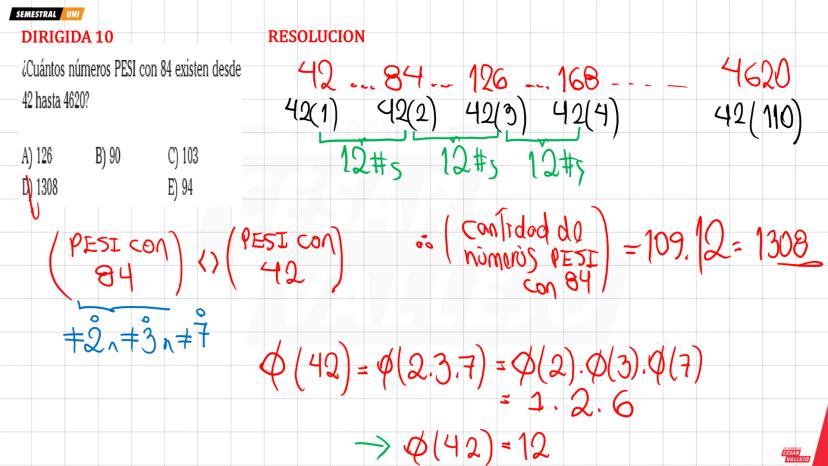 SEMESTRAL UNI
DIRIGIDA 10
¿Cuántos números PESI con 84 existen desde
42 hasta 4620?
A) 126 B) 90 C) 103
D) 1308 E) 94
RESOLUCION
42 ... 84 ... 126 ... 168 - - - - - 4620
42(1) 42(2) 42(3) 42(4) 42(110)
12#s 12#s 12#s
(PESI CON 84) <> (PESI CON 42)
≠2° ∧ ≠3° ∧ ≠7°
∴ (cantidad de números PESI con 84) = 109.12 = 1308
φ(42) = φ(2.3.7) = φ(2).φ(3).φ(7)
= 1.2.6
→ φ(42) = 12
CESAR
VALLEJO